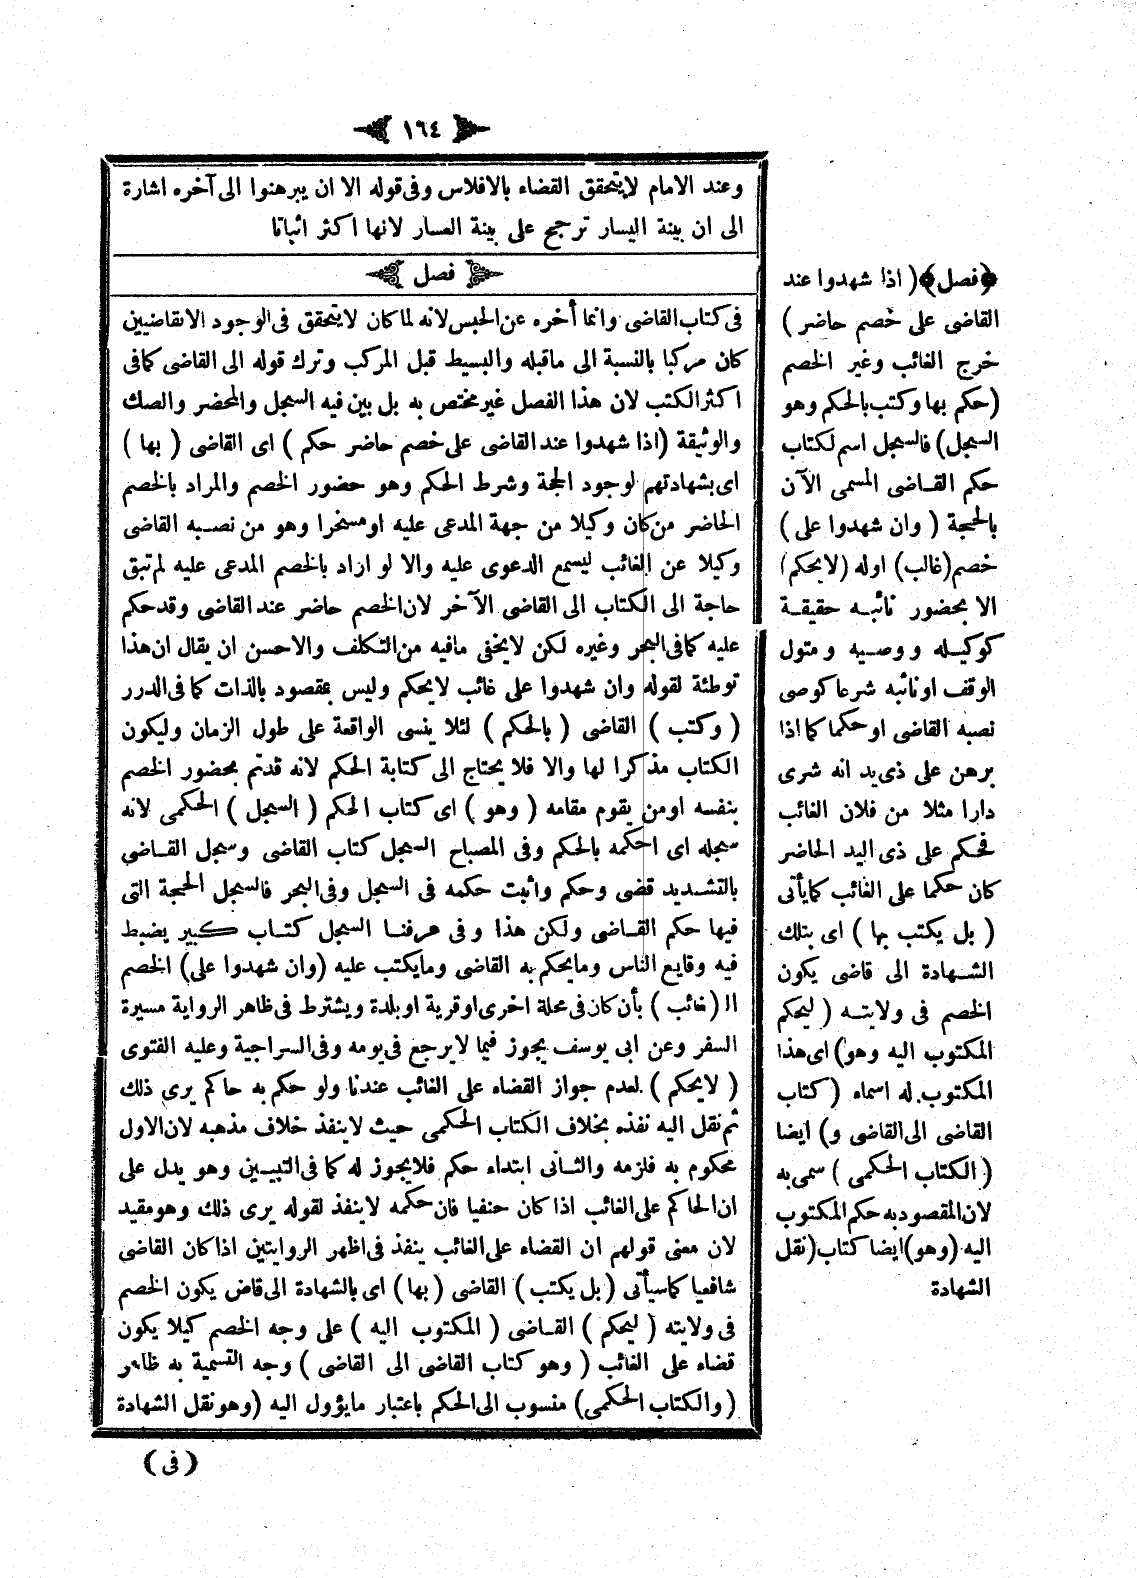 ١٦٤
وعند الامام لا يتحقق القضاء بالافلاس وفى قوله الا ان يبرهنوا الى آخره اشارة
الى ان بينة اليسار ترجح على بينة العسار لانها اكثر اثباتا
فصل
فى كتاب القاضى وانما أخره عن الحبس لانه لما كان لا يتحقق فى الوجود الا بقاضيين
كان مركبا بالنسبة الى ماقبله والبسيط قبل المركب وترك قوله الى القاضى كما فى
اكثر الكتب لان هذا الفصل غير مختص به بل بين فيه السجل والمحضر والصك
والوثيقة (اذا شهدوا عند القاضى على خصم حاضر حكم) اى القاضى (بها)
اى بشهادتهم لوجود الحجة وشرط الحكم وهو حضور الخصم والمراد بالخصم
الحاضر من كان وكيلا من جهة المدعى عليه او مسخرا وهو من نصبه القاضى
وكيلا عن الغائب ليسمع الدعوى عليه والا لو اراد بالخصم المدعى عليه لم تبق
حاجة الى الكتاب الى القاضى الآخر لان الخصم حاضر عند القاضى وقد حكم
عليه كما فى البحر وغيره لكن لا يخفى مافيه من التكلف والاحسن ان يقال ان هذا
توطئة لقوله وان شهدوا على غائب لا يحكم وليس بمقصود بالذات كما فى الدرر
(وكتب) القاضى (بالحكم) لئلا ينسى الواقعة على طول الزمان وليكون
الكتاب مذكرا لها والا فلا يحتاج الى كتابة الحكم لانه قدتم بحضور الخصم
بنفسه اومن يقوم مقامه (وهو) اى كتاب الحكم (السجل) الحكمى لانه
سجله اى احكمه بالحكم وفى المصباح السجل كتاب القاضى وسجل القاضى
بالتشديد قضى وحكم واثبت حكمه فى السجل وفى البحر فالسجل الحجة التى
فيها حكم القاضى ولكن هذا وفى عرفنا السجل كتاب كبير يضبط
فيه وقايع الناس وما يحكم به القاضى ومايكتب عليه (وان شهدوا على) الخصم
ال (غائب) بأن كان فى محلة اخرى او قرية او بلدة ويشترط فى ظاهر الرواية مسيرة
السفر وعن ابى يوسف يجوز فيما لا يرجع فى يومه وفى السراجية وعليه الفتوى
(لا يحكم) لعدم جواز القضاء على الغائب عندنا ولو حكم به حاكم يرى ذلك
ثم نقل اليه نفذه بخلاف الكتاب الحكمى حيث لا ينفذ خلاف مذهبه لان الاول
محكوم به فلزمه والثانى ابتداء حكم فلا يجوز له كما فى التبيين وهو يدل على
ان الحاكم على الغائب اذا كان حنفيا فان حكمه لا ينفذ لقوله يرى ذلك وهو مقيد
لان معنى قولهم ان القضاء على الغائب ينفذ فى اظهر الروايتين اذا كان القاضى
شافعيا كما سيأتى (بل يكتب) القاضى (بها) اى بالشهادة الى قاض يكون الخصم
فى ولايته (ليحكم) القاضى (المكتوب اليه) على وجه الخصم كيلا يكون
قضاء على الغائب (وهو كتاب القاضى الى القاضى) وجه التسمية به ظاهر
(والكتاب الحكمى) منسوب الى الحكم باعتبار مايؤول اليه (وهو نقل الشهادة
(فى)
﴿فصل﴾ (اذا شهدوا عند
القاضى على خصم حاضر)
خرج الغائب وغير الخصم
(حكم بها وكتب بالحكم وهو
السجل) فالسجل اسم لكتاب
حكم القاضى المسمى الآن
بالحجة (وان شهدوا على)
خصم (غائب) اوله (لا يحكم)
الا بحضور نائبه حقيقة
كوكيله ووصيه ومتول
الوقف او نائبه شرعا كوصى
نصبه القاضى او حكما كما اذا
برهن على ذى يد انه شرى
دارا مثلا من فلان الغائب
فحكم على ذى اليد الحاضر
كان حكما على الغائب كما يأتى
(بل يكتب بها) اى بتلك
الشهادة الى قاضى يكون
الخصم فى ولايته (ليحكم
المكتوب اليه وهو) اى هذا
المكتوب له اسماء (كتاب
القاضى الى القاضى و) ايضا
(الكتاب الحكمى) سمى به
لان المقصود به حكم المكتوب
اليه (وهو) ايضا كتاب (نقل
الشهادة